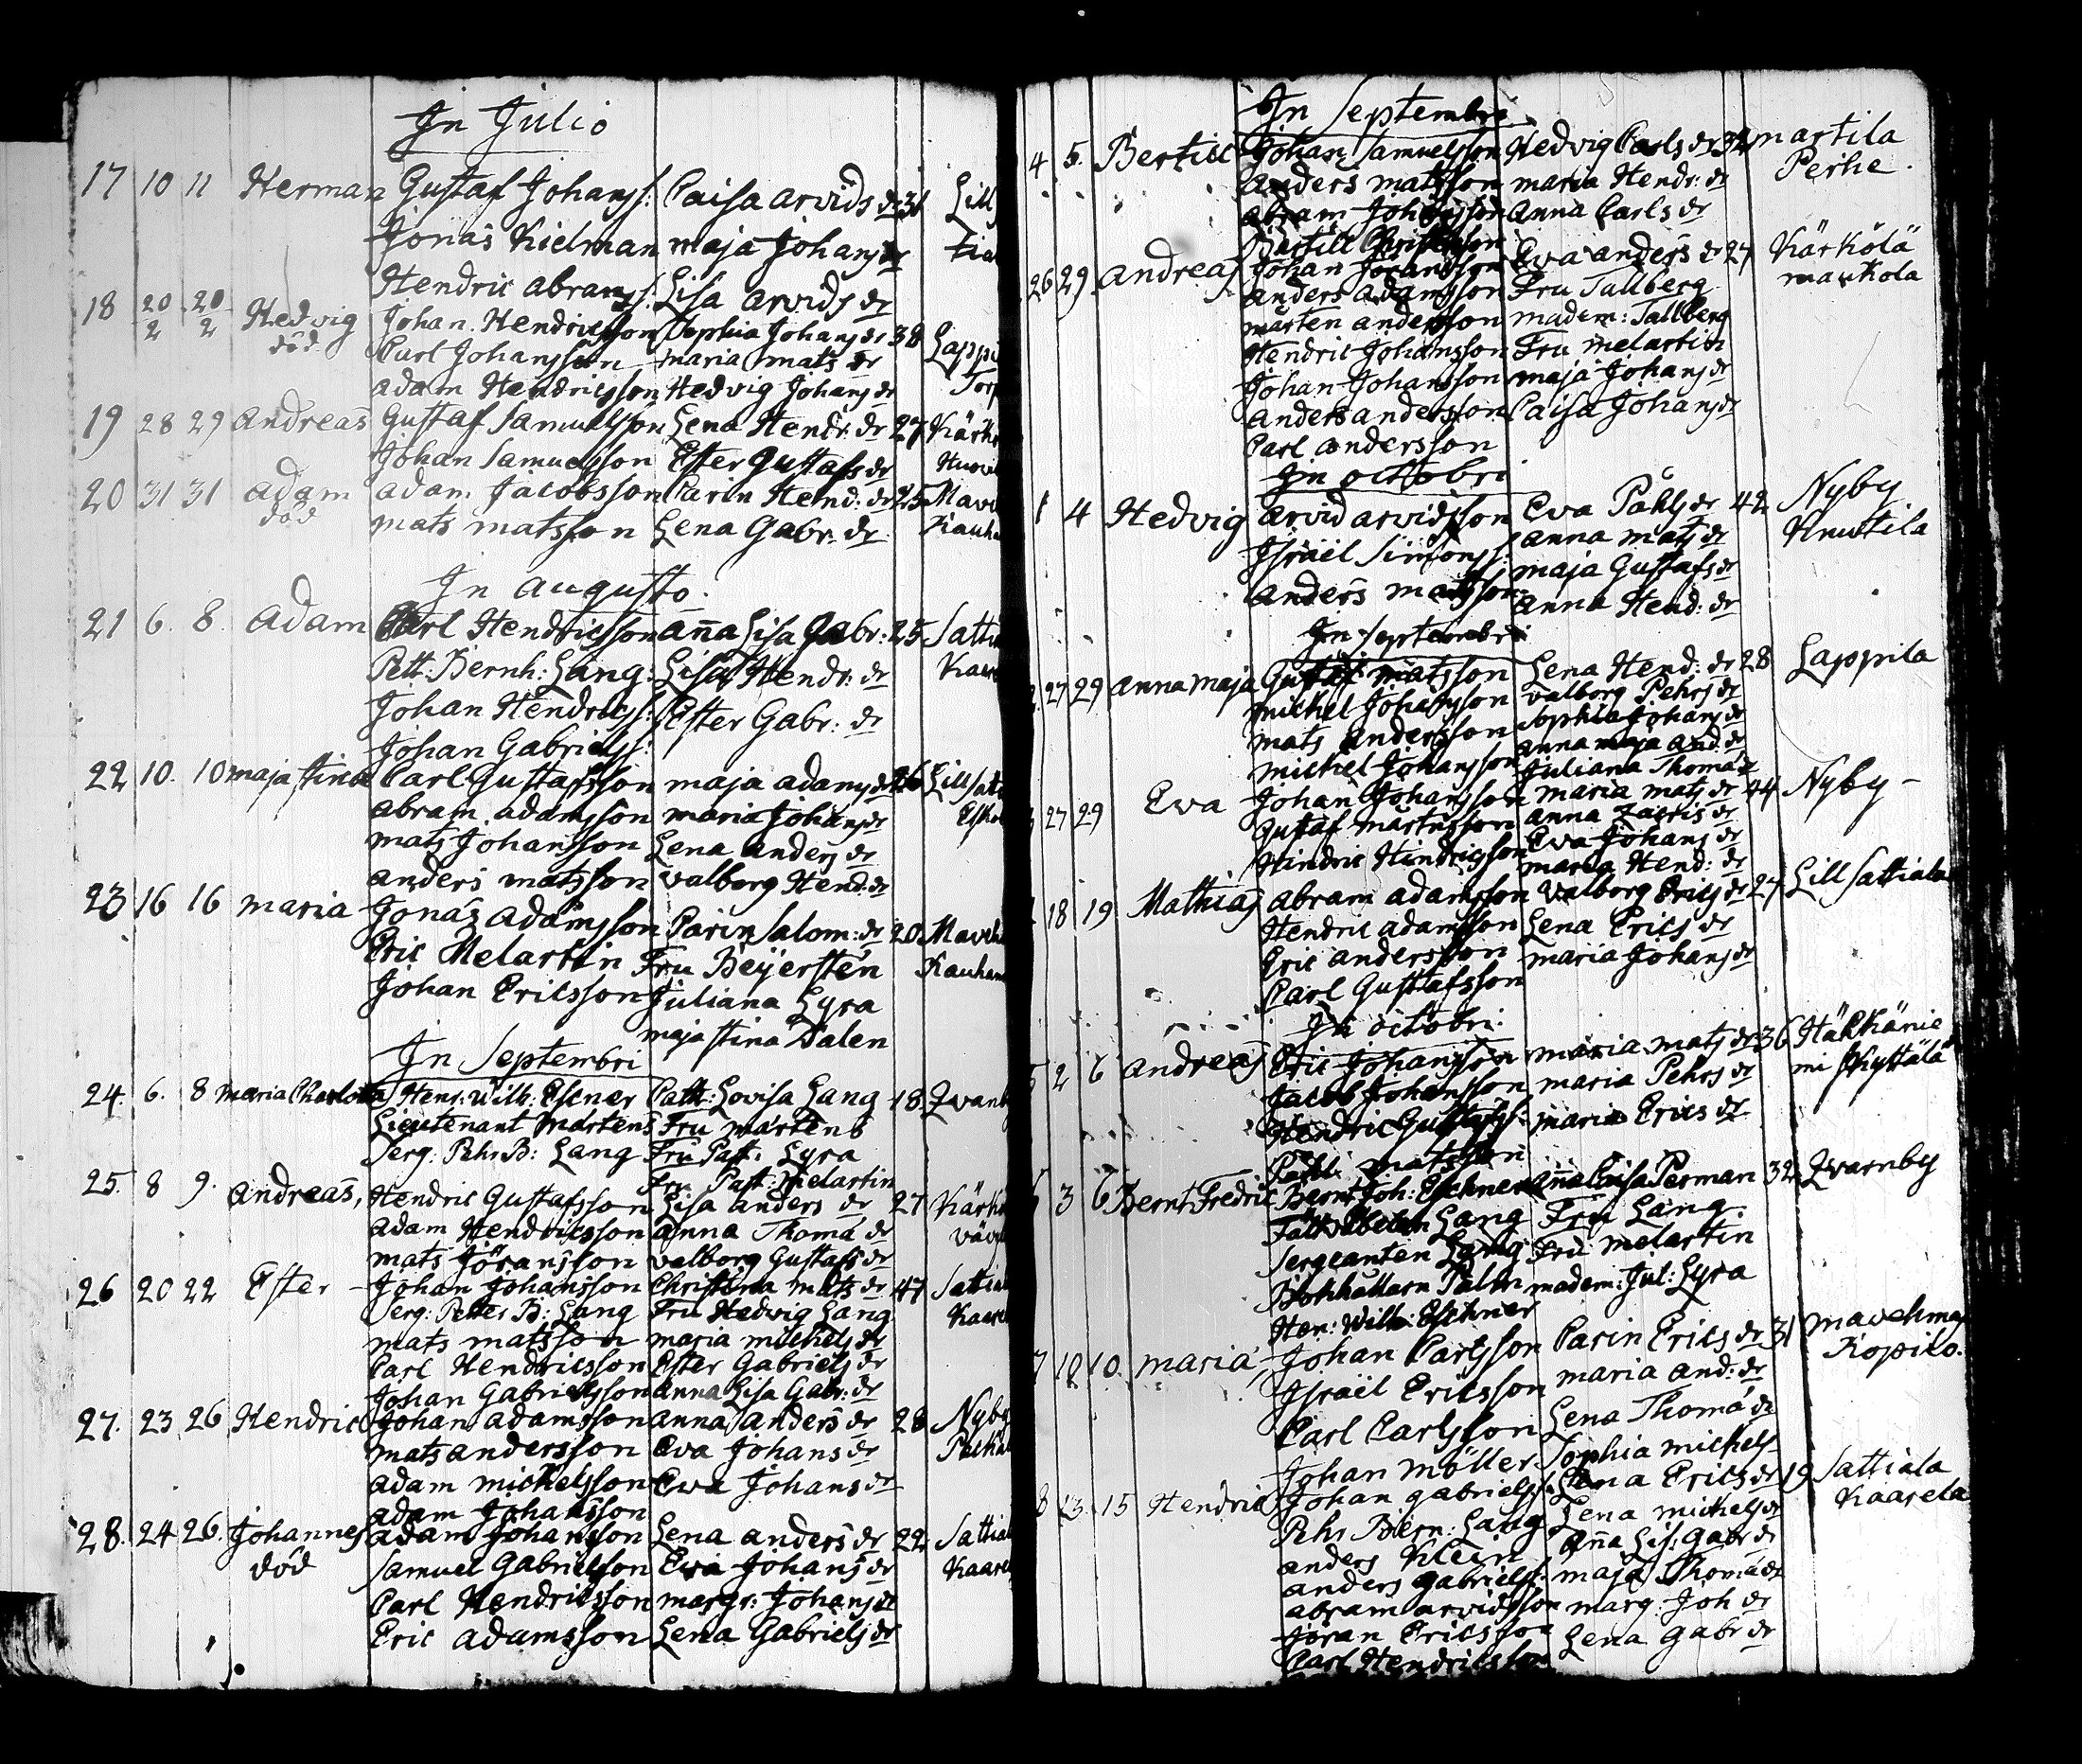 In Julio
17 10 11 Herman Gustaf Johanss: Caisa Arvids dr 31 Lill
Jonas Kielman Maja Johans dr
Hendric Abrams: Lisa Arvids dr
18 20/2 20/2 Hedvig Johan Hendricsson Sophia Johans dr 38 Lappi
död Carl Johansson Maria Mats dr Torp
Adam Hendricsson Hedvig Johans dr
19 28 29 Andreas Gustaf Samuelsson Lena Hendr: dr 27 Kärk
Johan Samuelsson Ester Gustafs dr
20 31 31 Adam Adam Jacobsson Carin Hend: dr 25 Mave
död Mats Matsson Lena Gabr: dr Kauh
In Augusto.
21 6. 8. Adam Carl Hendricsson Anna Lisa Gabr: 25 Satti
Pett: Bernh: Lang: Lisa Hendr: dr Kaar
Johan Hendricss: Ester Gabr: dr
Johan Gabrielss:
22 10. 10 Maja Stina Carl Gustafsson Maja Adams dr 26 Lill Sati
Abram Adamsson Maria Johans dr
Mats Johansson Lena Anders dr
Anders Matsson Valborg Hend: dr
23 16 16 Maria Jonas Adamsson Carin Salom: dr 20 Maveh
Eric Melartin Fru Beijerstén Kauhan
Johan Ericsson Juliana Lyra
Maja Stina Dalen
In Septembri
24. 6. 8 Maria Charlotta Henr: Wilh: Eschner Cath: Lovisa Lang 18 Qvanb
Lieutenant Mårtens Fru Mårtens
Serg: Pehr B: Lang Fru Past: Lyra
Fru Past: Melartin
25. 8 9. Andreas, Hendric Gustafsson Lisa Anders dr 27 Kärk
Adam Hendricsson Anna Thoma dr
Mats Jöransson Valborg Gustafs dr
26 20 22 Ester Johan Johansson Christina Mats dr 47 Sattia
Serg: Petter B: Lang Fru Hedvig Lang Kaare
Mats Matsson Maria Michels dr
Carl Hendricsson Ester Gabriels dr
Johan Gabrielsson Anna Lisa Gabr: dr
27. 23 26 Hendric Johan Adamsson Anna Anders dr 28 Nyby
Mats Andersson Eva Johans dr
Adam Michelsson Eva Johans dr
Adam Johansson
28. 24 26. Johannes Adam Johansson Lena Anders dr 22 Sattial
död Samuel Gabrielsson Eva Johans dr Kaare
Carl Hendricsson Margr: Johans dr
Eric Adamsson Lena Gabriels dr
In Septembri
4 5. Bertill Johan Samuelsson Hedvig Carls dr 32 Martila
Anders Matsson Maria Hendr: dr Perhe.
Abram Johansson Anna Carls dr
Bertill
26 29 Andreas Johan Jöransson Eva Anders dr 27 Kärkölä
Anders Adamsson Fru Tallberg Markola
Mårten Andersson Madem: Tallberg
Hendric Johansson Fru Melartin
Johan Johansson Maja Johans dr
Anders Andersson Caisa Johans dr
Carl Andersson
In Octobri
1 4 Hedvig Arvid Arvidsson Eva Påhls dr 42 Nyby
Israël Simonss: Anna Mats dr Knuttila
Anders Matsson Maja Gustafs dr
Anna Hend: dr
In Septembri
27 29 Anna Maja Gustaf Matsson Lena Hend: dr 28 Lappila
Michel Johansson Valborg Pehrs dr
Mats Andersson Sophia Johans dr
Michel Johansson Anna Maja And: dr
Juliana Thoma dr
27 29 Eva Johan Johansson Maria Mats dr 44 Nyby
Gustaf Martinsson Anna Zacris dr
Hindric Hindricsson Eva Johans dr
Maria Hend: dr
18 19 Mathias Abram Adamsson Valborg Erics dr 27 Lill Sattiala
Hendric Adamsson Lena Erics dr
Eric Andersson Maria Johans dr
Carl Gustafsson
In Octobri.
5 2 6 Andreas Eric Johansson Maria Mats dr 36 Häkkänie
Jacob Johansson Maria Pehrs dr mi Skyttälä
Hendric Gustafss: Maria Erics dr
Matsson
3 6 Bernt Fredric Bernt Joh: Eschner Anna Caisa Perman 32 Qvarnby
Lang Fru Lang.
Sergeanten Lang Fru Melartin
Bokhållarn Palm Madem: Jul: Lyra
Hen: Wilh: Eschner
7 10 10. Maria Johan Carlsson Carin Erics dr 31 Mavehma
Israël Ericsson Maria And: dr Kopilo.
Carl Carlsson Lena Thoma dr
Johan Möller Sophia Michels
8 13. 15 Hendric Johan Gabrielss: Lena Erics dr 19 Sattiala
Pehr Bern: Lang Lena Michels dr Kaarela
Anders Klein Anna Lis: Gabr dr
Anders Gabrielss: Maja Thoma dr
Abram Arvidsson Marg: Joh dr
Jöran Ericsson Lena Gabr dr
Carl Hendricsson